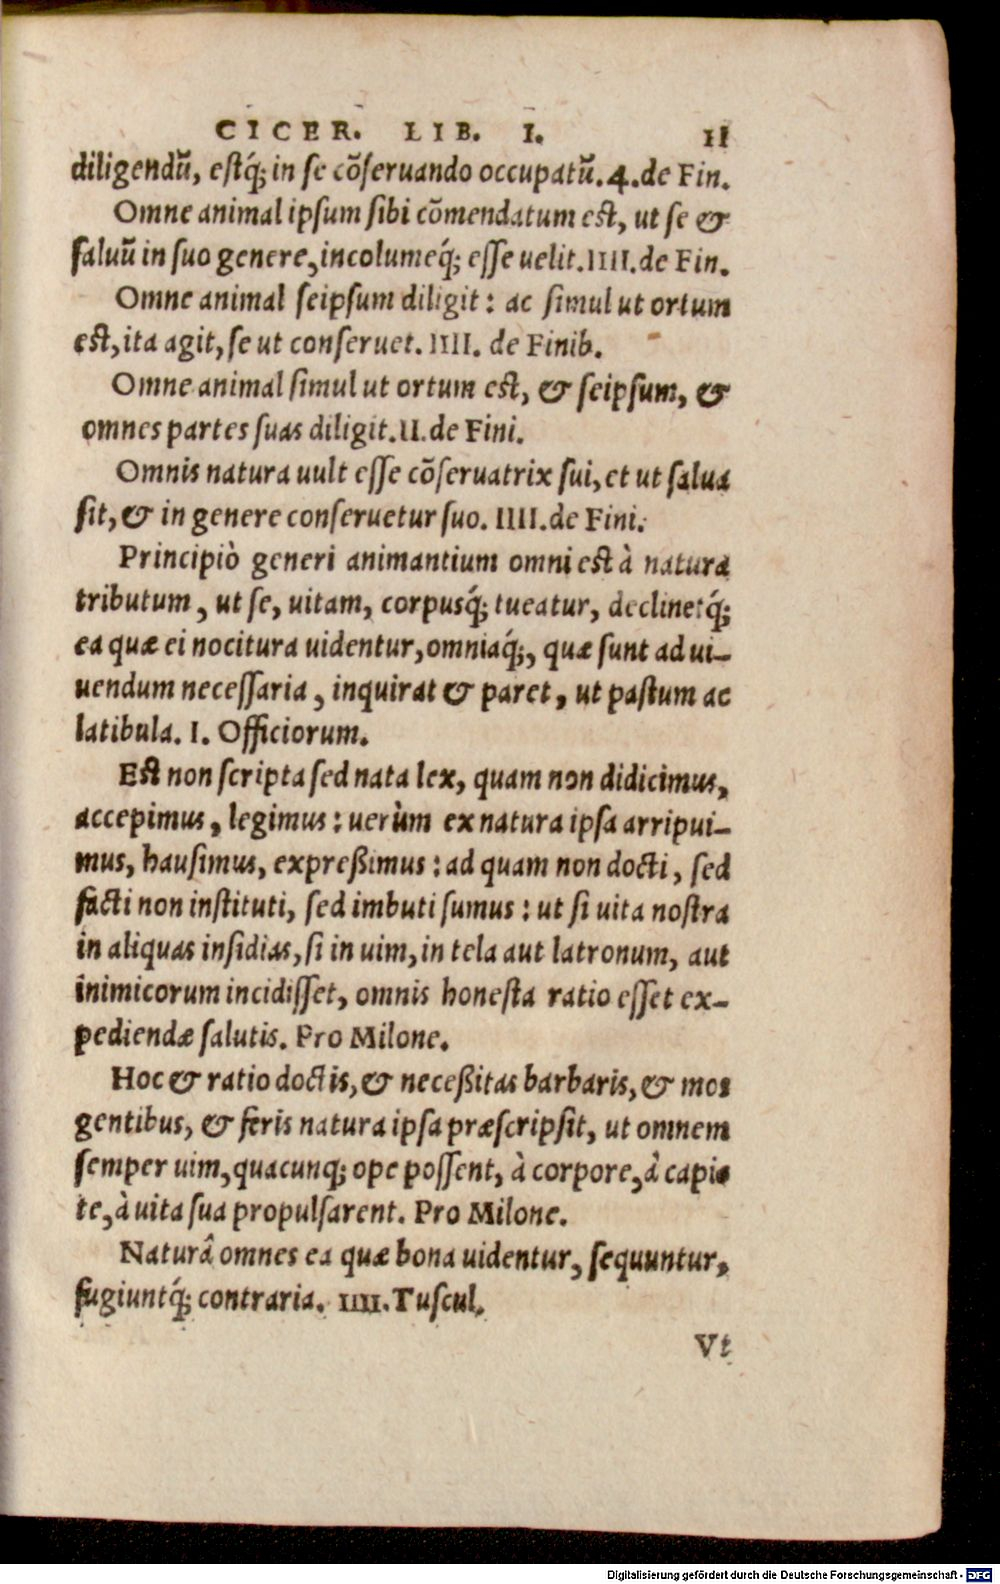 CICER. LIB. I. 11
diligendũ, estq́; in se cõseruando occupatũ. 4. de Fin.
Omne animal ipsum sibi cõmendatum est, ut se &
saluũ in suo genere, incolumeq́; esse uelit. IIII. de Fin.
Omne animal seipsum diligit: ac simul ut ortum
est, ita agit, se ut conseruet. IIII. de Finib.
Omne animal simul ut ortum est, & seipsum, &
omnes partes suas diligit. II. de Fini.
Omnis natura uult esse cõseruatrix sui, et ut salua
sit, & in genere conseruetur suo. IIII. de Fini.
Principiò generi animantium omni est à natura
tributum, ut se, uitam, corpusq́; tueatur, declinetq́;
ea quæ ei nocitura uidentur, omniaq́;, quæ sunt ad ui-
uendum necessaria, inquirat & paret, ut pastum ac
latibula. I. Officiorum.
Est non scripta sed nata lex, quam non didicimus,
accepimus, legimus: uerùm ex natura ipsa arripui-
mus, hausimus, expreßimus: ad quam non docti, sed
facti non instituti, sed imbuti sumus: ut si uita nostra
in aliquas insidias, si in uim, in tela aut latronum, aut
inimicorum incidisset, omnis honesta ratio esset ex-
pediendæ salutis. Pro Milone.
Hoc & ratio doctis, & neceßitas barbaris, & mos
gentibus, & feris natura ipsa præscripsit, ut omnem
semper uim, quacunq; ope possent, à corpore, à capi-
te, à uita sua propulsarent. Pro Milone.
Naturâ omnes ea quæ bona uidentur, sequuntur,
fugiuntq́; contraria. IIII. Tuscul.
Vt
Digitalisierung gefördert durch die Deutsche Forschungsgemeinschaft - DFG